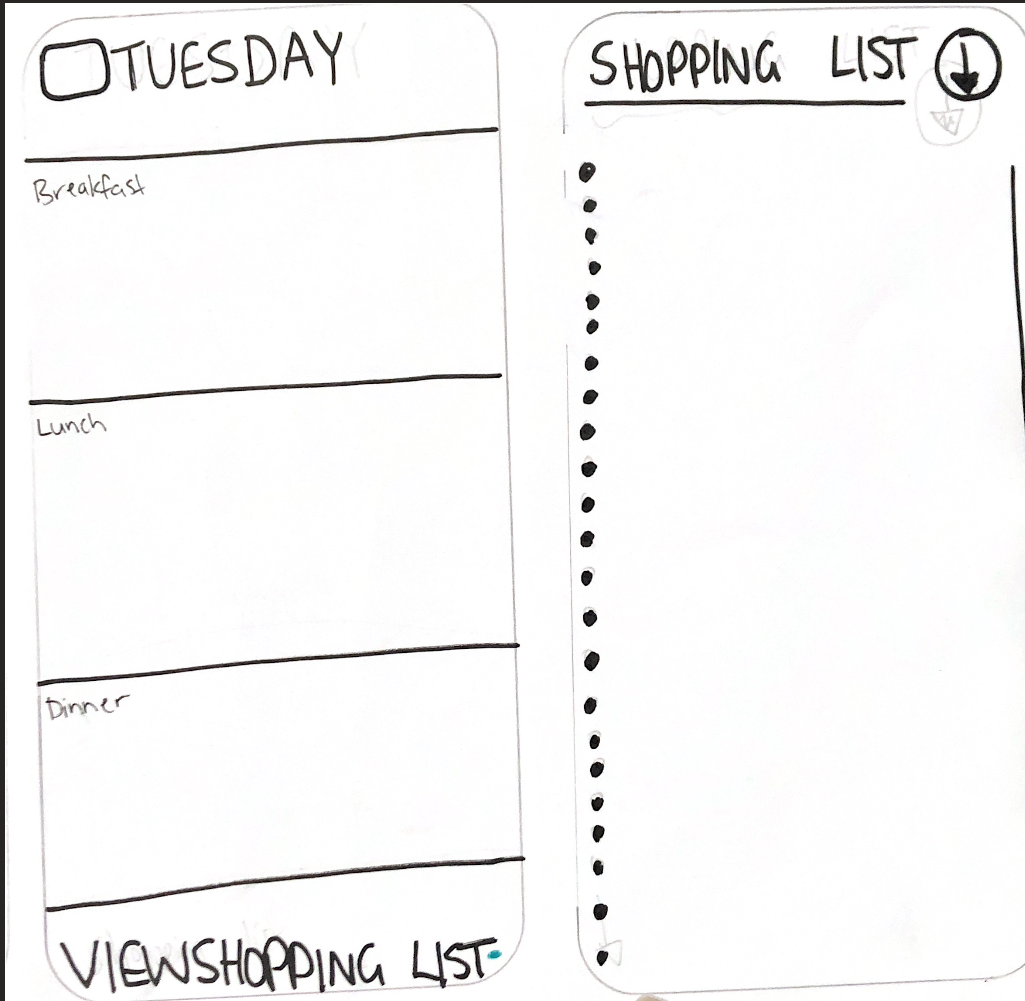 TUESDAY
Breakfast
Lunch
Dinner
VIEWSHOPPING LIST
SHOPPING LIST